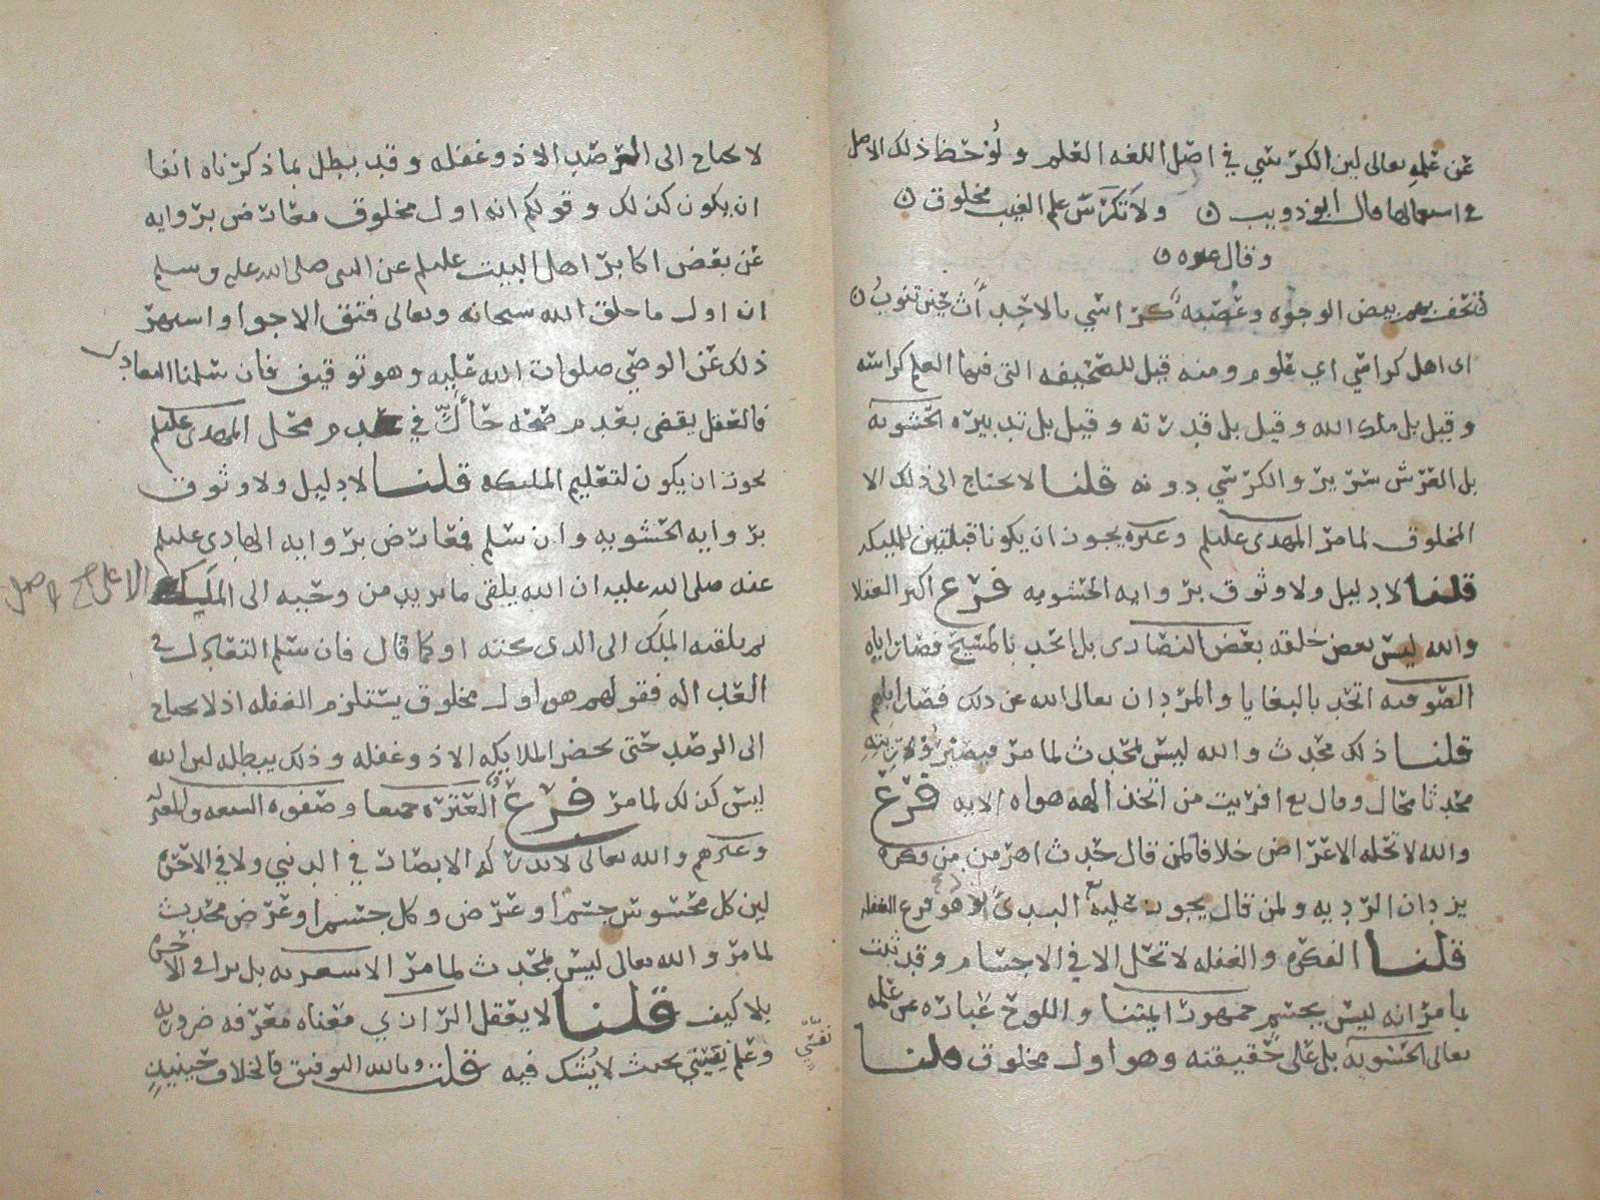 عن علمه تعالى لين الكرسي في اصل اللغه العلم ولوحظ ذلك الاصل
في استعمالها قال ابو ذويب ولا تكرس علم الغيب مخلوق
وقال غيره
تحف بهم بيض الوجوه وعصبه كراسي بالاحداث حين تنوب
اى اهل كراسي اي علوم ومنه قيل للصحيفه التى فيها العلم كراسه
وقيل بل ملك الله وقيل بل قدرته وقيل بل تدبيره الحشويه
بل العرش سرير والكرسي دونه قلنا لا يحتاج الى ذلك الا
المخلوق لما مر المهدى عليلم وغيره يجوز ان يكونا قبلتين للمليكه
قلنا لا دليل ولا وثوق بروايه الحشويه فرع اكبر العقلا
والله ليس بعض خلقه بعض النصارى بل اتحد بالمسيح فصار اياه
الصوفيه اتحد بالبغايا والمردان تعالى الله عن ذلك فصار اياهم
قلنا ذلك محدث والله ليس بمحدث لما مر فيصير
محدثا محال وقال تع افريت من اتخذ الهه هواه الايه فرع
والله لا تحله الاعراض خلافا لمن قال حدث اهرمن من فكره
يزدان الرديه ولمن قال يجوز عليه البدى اذ هو فرع الغفله
قلنا الفكره والغفله لا تحل الا في الاجسام وقد ثبت
بما مر انه ليس بجسم جمهور ايمتنا واللوح عباره عن علمه
تعالى الحشويه بل على حقيقته وهو اول مخلوق قلنا
لا يحتاج الى الرصد الا ذو غفله وقد بطل بما ذكرناه انفا
ان يكون كذلك وقولكم انه اول مخلوق معارض بروايه
عن بعض اكابر اهل البيت عليلم عن النبى صلى الله عليه وسلم
ان اول ما خلق الله سبحانه وتعالى فتق الاجوا واشتهر
ذلك عن الوصي صلوات الله عليه وهو توقيف فان سلمنا التعادل
فالعقل يقضى بعدم صحه حال في عدم محل المهدى عليلم
يجوز ان يكون لتعليم المليكه قلنا لا دليل ولا وثوق
بروايه الحشويه وان سلم فمعارض بروايه الهادى عليلم
عنه صلى الله عليه ان الله يلقى ما يريد من وحيه الى الملك الاعلى
ثم يلقيه الملك الى الذى تحته او كما قال فان سلم التعادل في
العداله فقولهم هو اول مخلوق يستلزم الغفله اذ لا يحتاج
الى الرصد حتى يحضر الملايكه الا ذو غفله وذلك يبطله لين الله
ليس كذلك لما مر فرع العتره جميعا وصفوه الشيعه والمعتزله
وغيرهم والله تعالى لا تدركه الابصار في الدنيى ولا في الاخره
لين كل محسوس جسم او عرض وكل جسم او عرض محدث
لما مر والله تعالى ليس بمحدث لما مر الاشعريه بل يرا في الاخره
بلا كيف قلنا لا يعقل الرازي معناه معرفه ضروريه
وعلم نفسي بحيث لا يشك فيه قلت وبالله التوفيق فالخلاف حينيذٍ
نفسي